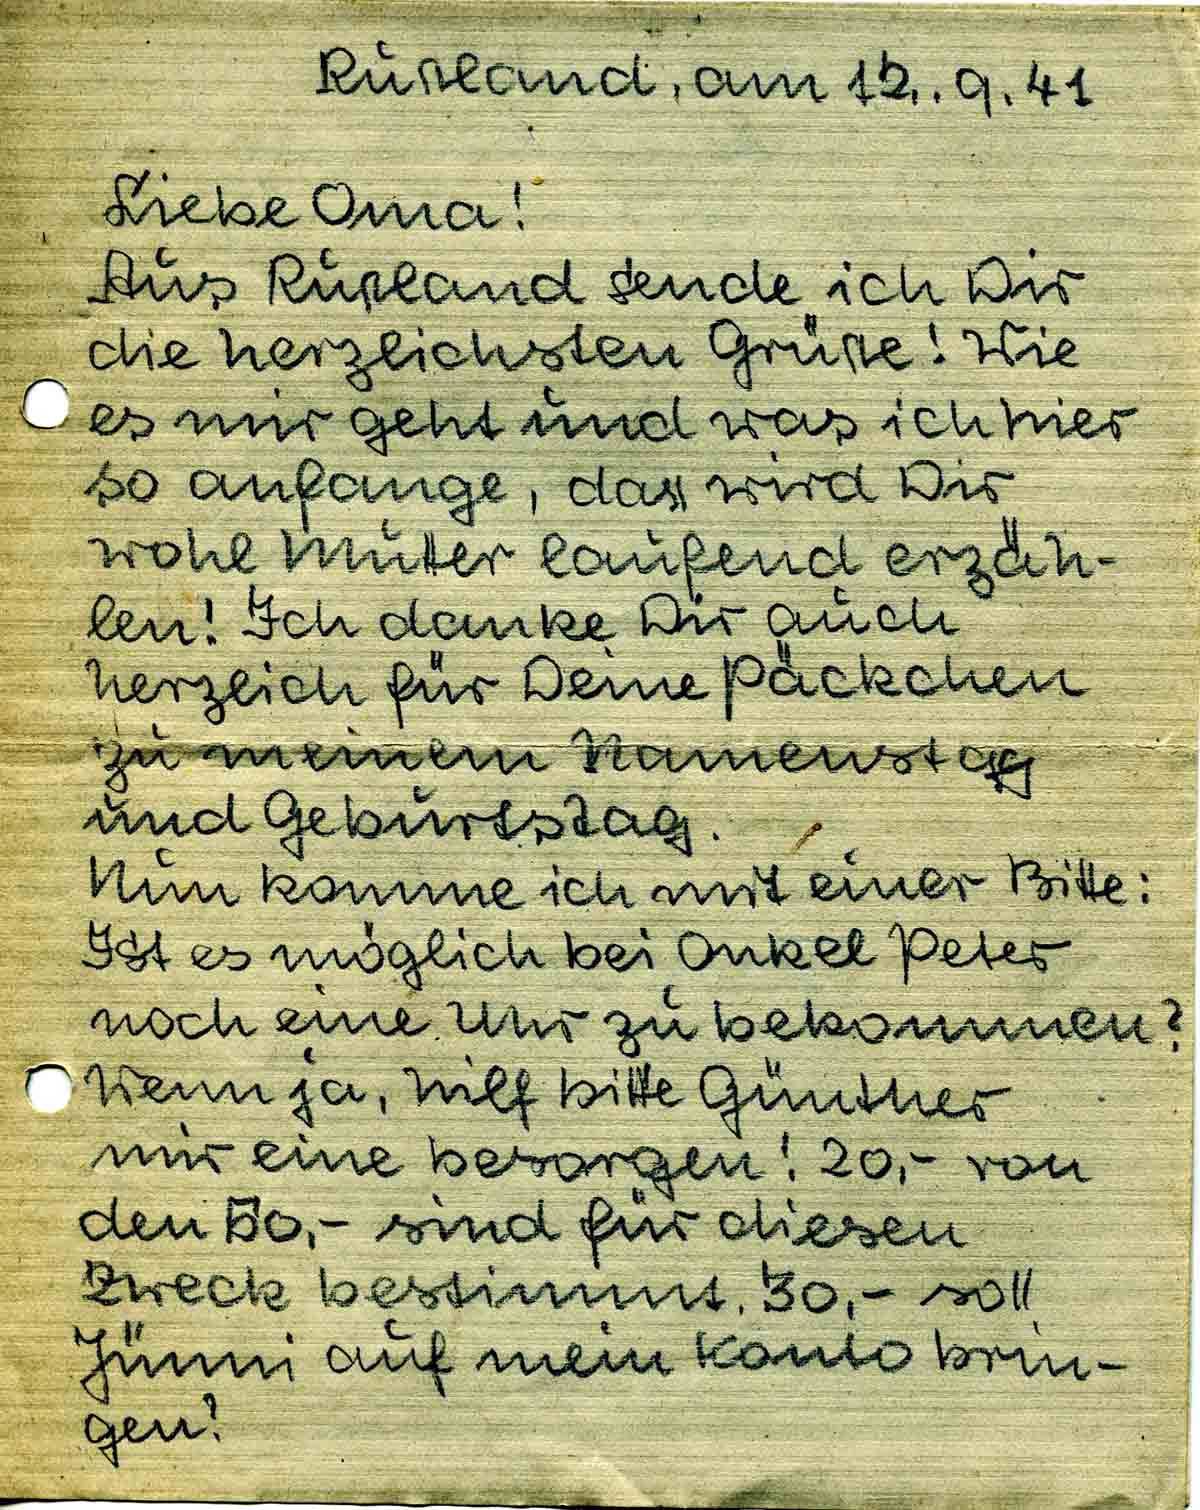 Rußland, am 12. 9. 41
Liebe Oma!
Aus Rußland sende ich Dir
die herzlichsten Grüße! Wie
es mir geht und was ich hier
so anfange, das wird Dir
wohl Mutter laufend erzäh-
len! Ich danke Dir auch
herzlich für Deine Päckchen
zu meinem Namenstag
und Geburtstag.
Nun komme ich mit einer Bitte:
Ist es möglich bei Onkel Peter
noch eine Uhr zu bekommen?
Wenn ja, hilf bitte Günther
mir eine besorgen! 20,- von
den 50,- sind für diesen
Zweck bestimmt. 30,- soll
Jünni auf mein Konto brin-
gen!